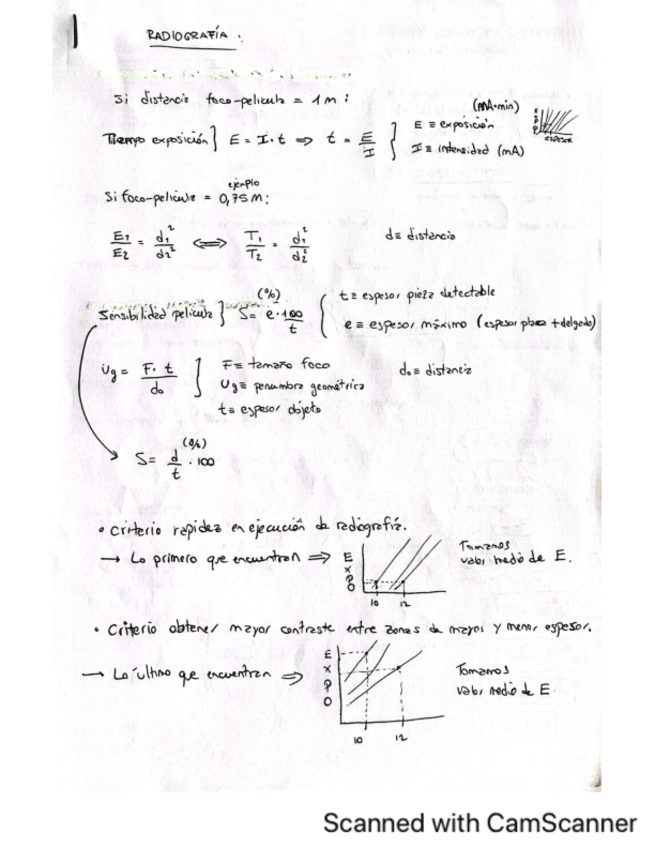 RADIOGRAFÍA.
Si distancia foco-pelicula = 1 m:
(mA·min)
Tiempo exposición] E = I·t ⇒ t = E/I } E ≡ exposición
I ≡ intensidad (mA)
EXPO
ESPESOR
ejemplo
Si foco-pelicula = 0,75 m:
E1/E2 = d1²/d2² ⟺ T1/T2 = d1²/d2² d ≡ distancia
(%)
Sensibilidad pelicula] S = e·100/t { t ≡ espesor pieza detectable
e ≡ espesor máximo (espesor placa + delgado)
Ug = F·t/do ] F ≡ tamaño foco do ≡ distancia
Ug ≡ penumbra geométrica
t ≡ espesor objeto
(%)
S = d/t · 100
• Criterio rapidez en ejecución de radiografía.
→ Lo primero que encuentran ⇒ EXPO 10 12 Tomamos valor medio de E.
• Criterio obtener mayor contraste entre zonas de mayor y menor espesor.
→ Lo último que encuentran ⇒ EXPO 10 12 Tomamos valor medio de E.
Scanned with CamScanner